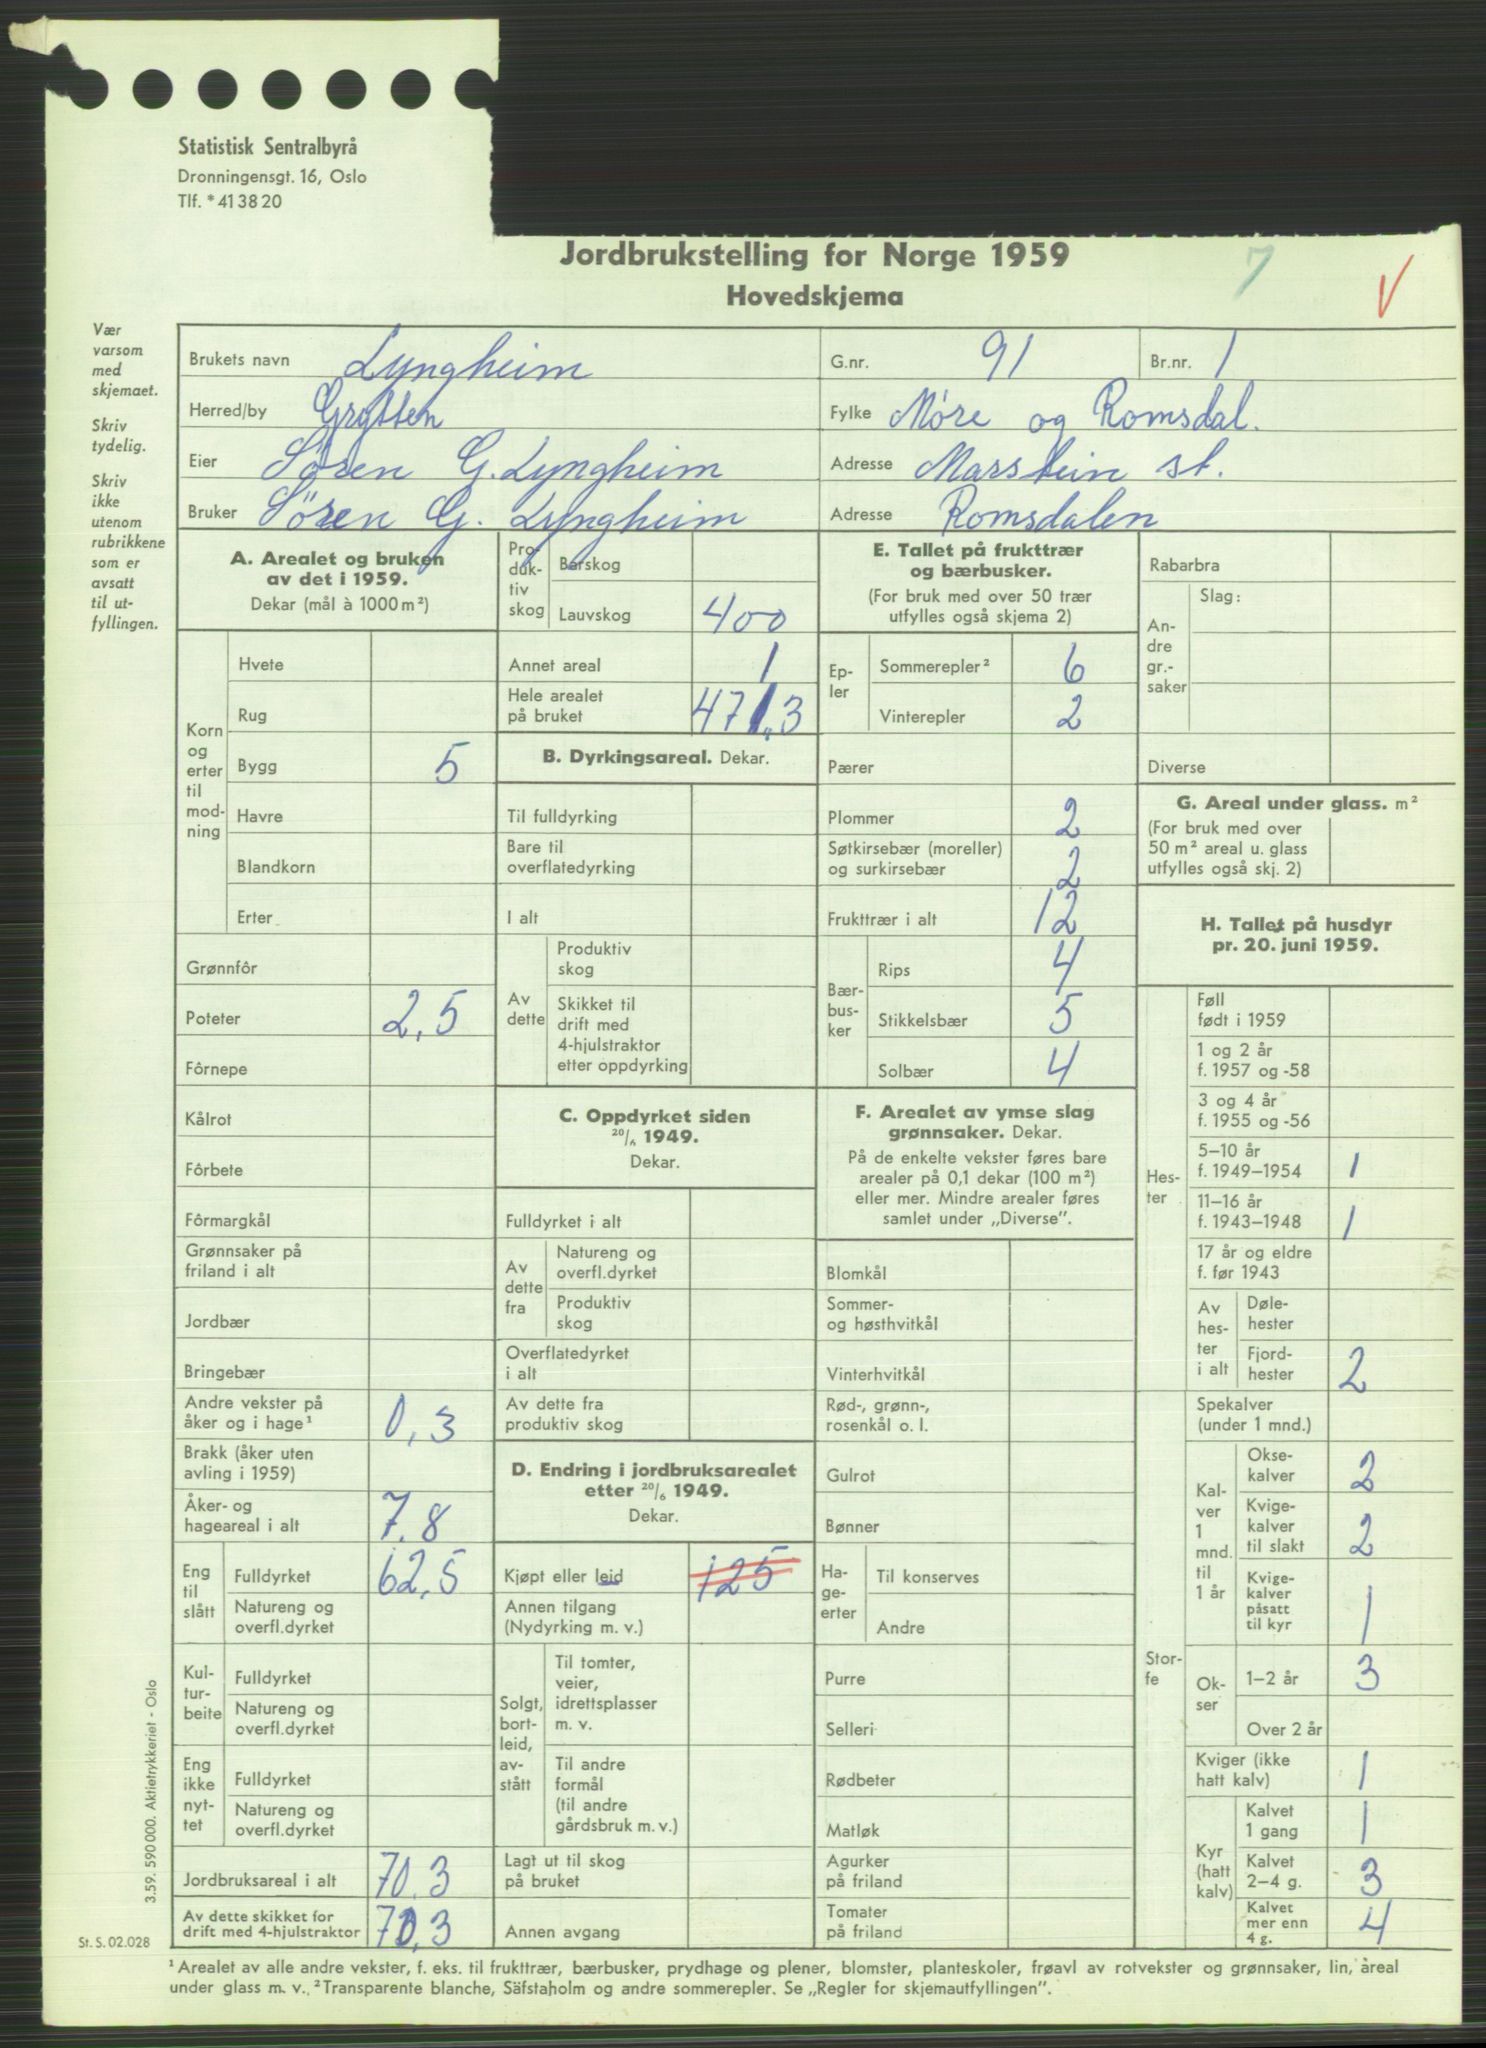 Statistisk Sentralbyrå
Dronningensgt. 16, Oslo
Tlf. * 41 38 20
Jordbrukstelling for Norge 1959
Hovedskjema
7
V
Vær
varsom
med
skjemaet.
Skriv
tydelig.
Skriv
ikke
utenom
rubrikkene
som er
avsatt
til ut-
fyllingen.
Brukets navn Lyngheim G.nr. 91 Br.nr. 1
Herred/by Grytten Fylke Møre og Romsdal.
Eier Søren G. Lyngheim Adresse Marstein st.
Bruker Sören G. Lyngheim Adresse Romsdalen
A. Arealet og bruken
av det i 1959.
Dekar (mål à 1000 m²)
Korn
og
erter
til
mod-
ning
Hvete
Rug
Bygg 5
Havre
Blandkorn
Erter
Grønnfôr
Poteter 2,5
Fôrnepe
Kålrot
Fôrbete
Fôrmargkål
Grønnsaker på
friland i alt
Jordbær
Bringebær
Andre vekster på
åker og i hage¹ 0,3
Brakk (åker uten
avling i 1959)
Åker- og
hageareal i alt 7.8
Eng
til
slått
Fulldyrket 62,5
Natureng og
overfl.dyrket
Kul-
tur-
beite
Fulldyrket
Natureng og
overfl.dyrket
Eng
ikke
nyt-
tet
Fulldyrket
Natureng og
overfl.dyrket
Jordbruksareal i alt 70.3
Av dette skikket for
drift med 4-hjulstraktor 70,3
Pro-
duk-
tiv
skog
Barskog
Lauvskog 400
Annet areal 1
Hele arealet
på bruket 471,3
B. Dyrkingsareal. Dekar.
Til fulldyrking
Bare til
overflatedyrking
I alt
Av
dette
Produktiv
skog
Skikket til
drift med
4-hjulstraktor
etter oppdyrking
C. Oppdyrket siden
20/6 1949.
Dekar.
Fulldyrket i alt
Av
dette
fra
Natureng og
overfl.dyrket
Produktiv
skog
Overflatedyrket
i alt
Av dette fra
produktiv skog
D. Endring i jordbruksarealet
etter 20/6 1949.
Dekar.
Kjøpt eller leid 125
Annen tilgang
(Nydyrking m. v.)
Solgt,
bort-
leid,
av-
stått
Til tomter,
veier,
idrettsplasser
m. v.
Til andre
formål
(til andre
gårdsbruk m. v.)
Lagt ut til skog
på bruket
Annen avgang
E. Tallet på frukttrær
og bærbusker.
(For bruk med over 50 trær
utfylles også skjema 2)
Ep-
ler
Sommerepler² 6
Vinterepler 2
Pærer
Plommer 2
Søtkirsebær (moreller)
og surkirsebær 2
Frukttrær i alt 12
Bær-
bus-
ker
Rips 4
Stikkelsbær 5
Solbær 4
F. Arealet av ymse slag
grønnsaker. Dekar.
På de enkelte vekster føres bare
arealer på 0,1 dekar (100 m²)
eller mer. Mindre arealer føres
samlet under „Diverse”.
Blomkål
Sommer-
og høsthvitkål
Vinterhvitkål
Rød-, grønn-,
rosenkål o. l.
Gulrot
Bønner
Ha-
ge-
erter
Til konserves
Andre
Purre
Selleri
Rødbeter
Matløk
Agurker
på friland
Tomater
på friland
Rabarbra
An-
dre
gr.-
saker
Slag:
Diverse
G. Areal under glass. m²
(For bruk med over
50 m² areal u. glass
utfylles også skj. 2)
H. Tallet på husdyr
pr. 20. juni 1959.
Hes-
ter
Føll
født i 1959
1 og 2 år
f. 1957 og -58
3 og 4 år
f. 1955 og -56
5–10 år
f. 1949–1954 1
11–16 år
f. 1943–1948 1
17 år og eldre
f. før 1943
Av
hes-
ter
i alt
Døle-
hester
Fjord-
hester 2
Stor-
fe
Spekalver
(under 1 mnd.)
Kal-
ver
1
mnd.
til
1 år
Okse-
kalver 2
Kvige-
kalver
til slakt 2
Kvige-
kalver
påsatt
til kyr 1
Ok-
ser
1–2 år 3
Over 2 år
Kviger (ikke
hatt kalv) 1
Kyr
(hatt
kalv)
Kalvet
1 gang 1
Kalvet
2–4 g. 3
Kalvet
mer enn
4 g. 4
3.59. 590 000. Aktietrykkeriet - Oslo
St. S. 02.028
¹ Arealet av alle andre vekster, f. eks. til frukttrær, bærbusker, prydhage og plener, blomster, planteskoler, frøavl av rotvekster og grønnsaker, lin, areal
under glass m. v. ² Transparente blanche, Säfstaholm og andre sommerepler. Se „Regler for skjemautfyllingen”.